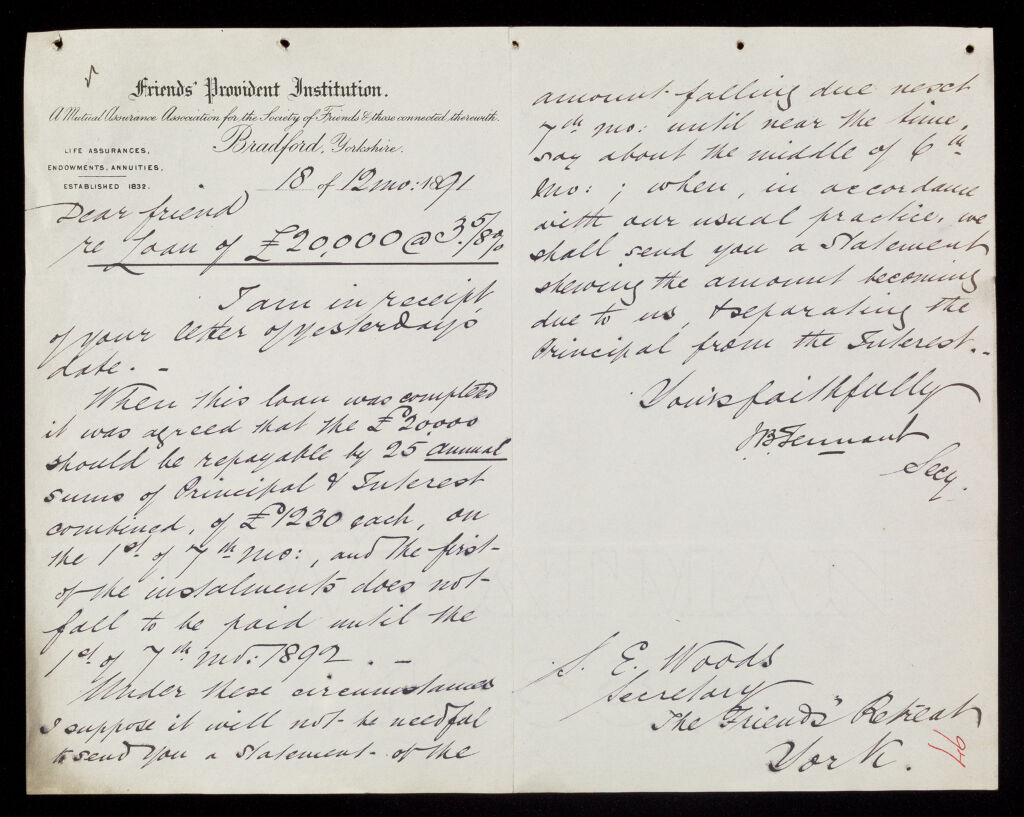 Friends' Provident Institution.
A Mutual Assurance Association for the Society of Friends & those connected therewith.
Bradford, Yorkshire.
LIFE ASSURANCES,
ENDOWMENTS, ANNUITIES,
ESTABLISHED 1832.
18 of 12 mo: 1891
Dear friend
re Loan of £20,000 @ 3 5/8 %
I am in receipt
of your letter of yesterday's
date. -
When this loan was completed
it was agreed that the £20,000
should be repayable by 25 annual
sums of Principal & Interest
combined, of £1230 each, on
the 1st of 7th mo:, and the first
of the instalments does not
fall to be paid until the
1st of 7th mo: 1892. -
Under these circumstances
I suppose it will not be needful
to send you a statement of the
amount falling due next
7th mo: until near the time,
say about the middle of 6th
mo: ; when, in accordance
with our usual practice, we
shall send you a statement
shewing the amount becoming
due to us, & separating the
Principal from the Interest. -
Yours faithfully
J B Tennant
Secy.
S. E. Woods
Secretary
The Friends' Retreat
York.
46